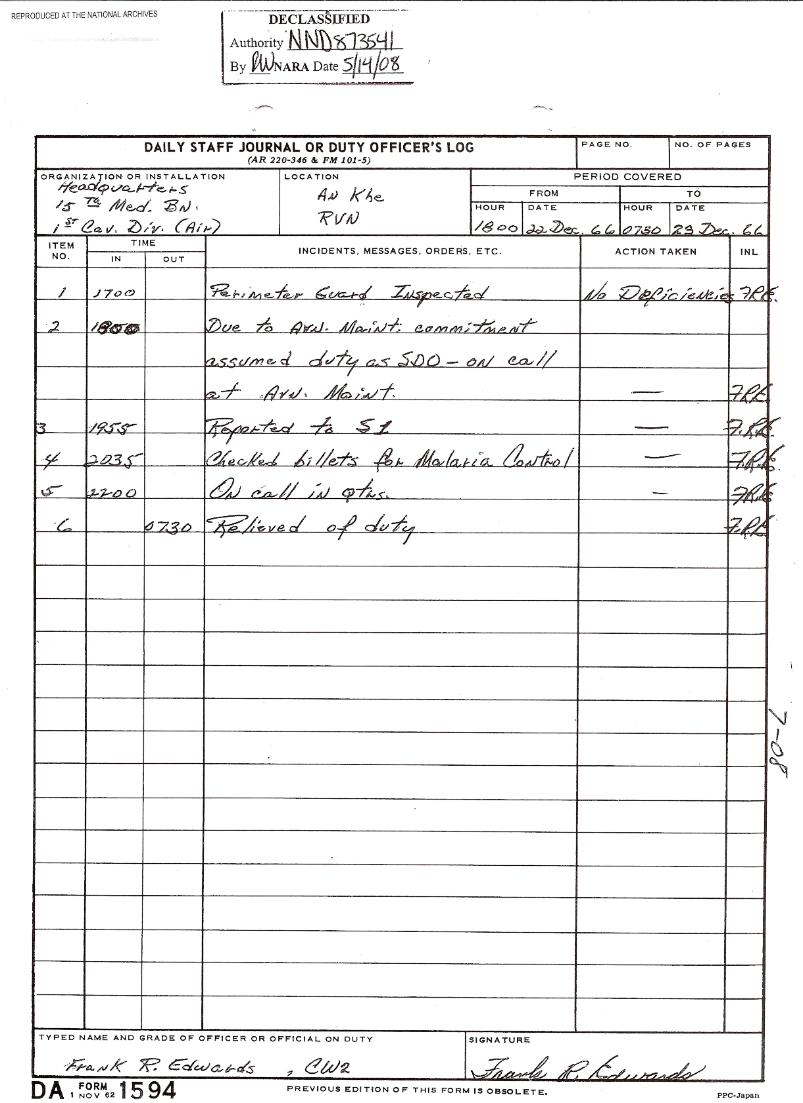 REPRODUCED AT THE NATIONAL ARCHIVES
DECLASSIFIED
Authority NND873541
By NARA Date 5/14/08
DAILY STAFF JOURNAL OR DUTY OFFICER'S LOG
(AR 220-346 & FM 101-5)
PAGE NO.
NO. OF PAGES
ORGANIZATION OR INSTALLATION
Headquarters
15 Th Med. Bn.
1st Cav. Div. (Air)
LOCATION
An Khe
RVN
PERIOD COVERED
FROM TO
HOUR DATE HOUR DATE
1800 22 Dec. 66 0730 23 Dec. 66
ITEM NO. TIME INCIDENTS, MESSAGES, ORDERS, ETC. ACTION TAKEN INL
IN OUT
1 1700 Perimeter Guard Inspected No Deficiencies FRE.
2 1800 Due to Avn. Maint. commitment
assumed duty as SDO - on call
at Avn. Maint. — FRE
3 1955 Reported to S1 — F.R.E.
4 2035 Checked billets for Malaria Control — F.R.E
5 2200 On call in qtrs. — FRE
6 0730 Relieved of duty F.RE
7-08
TYPED NAME AND GRADE OF OFFICER OR OFFICIAL ON DUTY
Frank R. Edwards , CW2
SIGNATURE
Frank R. Edwards
DA FORM 1594
1 NOV 62
PREVIOUS EDITION OF THIS FORM IS OBSOLETE.
PPC-Japan